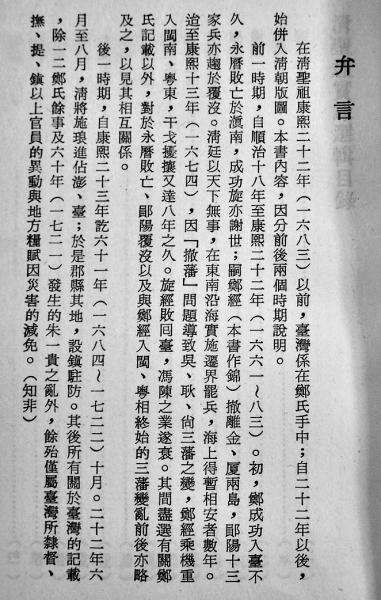 弁言
在清聖祖康熙二十二年（一六八三）以前，臺灣係在鄭氏手中；自二十二年以後，
始併入清朝版圖。本書內容，因分前後兩個時期說明。
前一時期，自順治十八年至康熙二十二年（一六六一～八三）。初，鄭成功入臺不
久，永曆敗亡於滇南，成功旋亦謝世；嗣鄭經（本書作錦）撤離金、厦兩島，鄖陽十三
家兵亦趨於覆沒。清廷以天下無事，在東南沿海實施遷界罷兵，海上得暫相安者數年。
迨至康熙十三年（一六七四），因「撤藩」問題導致吳、耿、尙三藩之變，鄭經乘機重
入閩南、粵東，干戈擾攘又達八年之久。旋經敗囘臺，馮陳之業遂衰。其間盡選有關鄭
氏記載以外，對於永曆敗亡、鄖陽覆沒以及與鄭經入閩、粵相終始的三藩變亂前後亦略
及之，以見其相互關係。
後一時期，自康熙二十三年訖六十一年（一六八四～一七二二）十月。二十二年六
月至八月，清將施琅進佔澎、臺；於是郡縣其地，設鎮駐防。其後所有關於臺灣的記載
，除一二鄭氏餘事及六十年（一七二一）發生的朱一貴之亂外，餘殆僅屬臺灣所隸督、
撫、提、鎮以上官員的異動與地方糧賦因災害的減免。（知非）